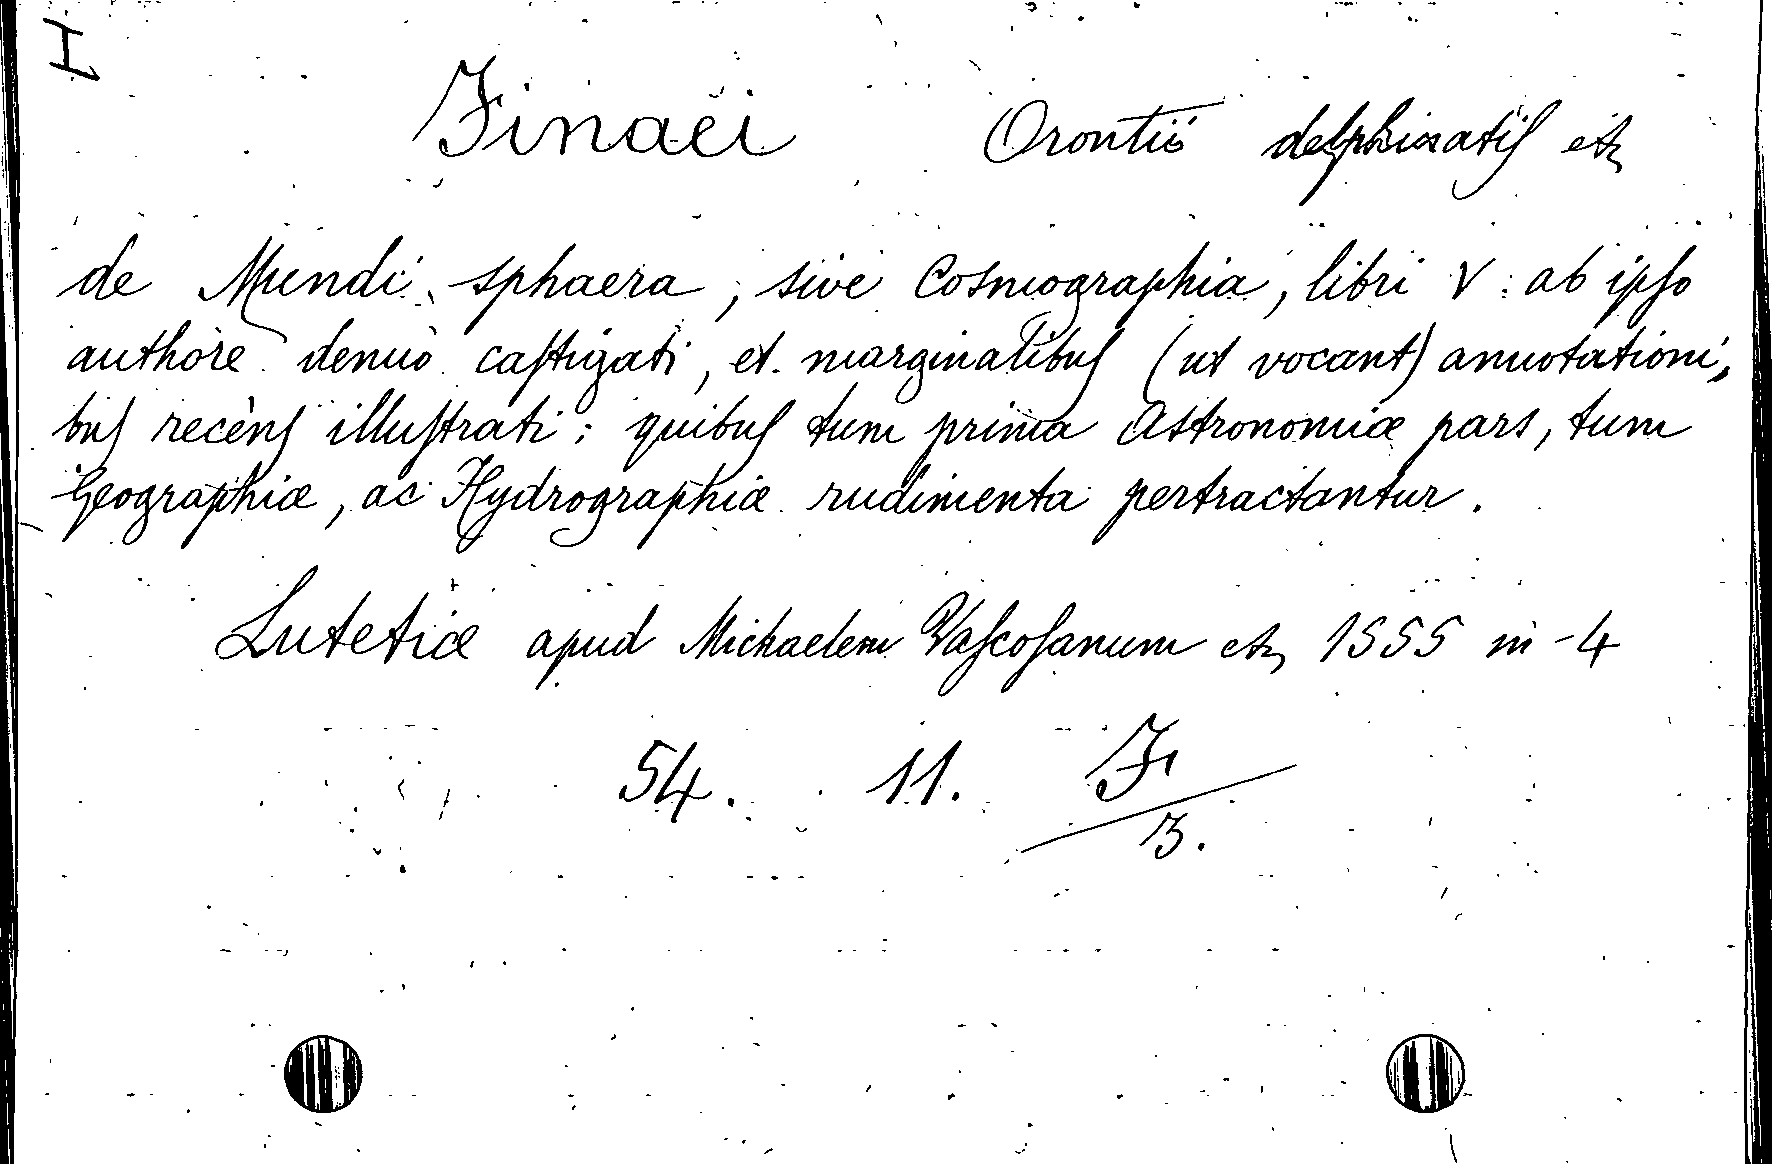 I
Finaei Orontii delphinatiſ etz
de Mundi sphaera, sive Cosmographia, libri V: ab ipſo
authore denuò caſtigati, et marginalibuſ (ut vocant) annotationi,
buſ recènſ illuſtrati: quibuſ tum prima Astronomiæ pars, tum
Geographiæ, ac Hydrographiæ rudimenta pertractantur.
Lutetiæ apud Michaelem Vaſcoſanum etz 1555 in-4
54. 11. F/3.